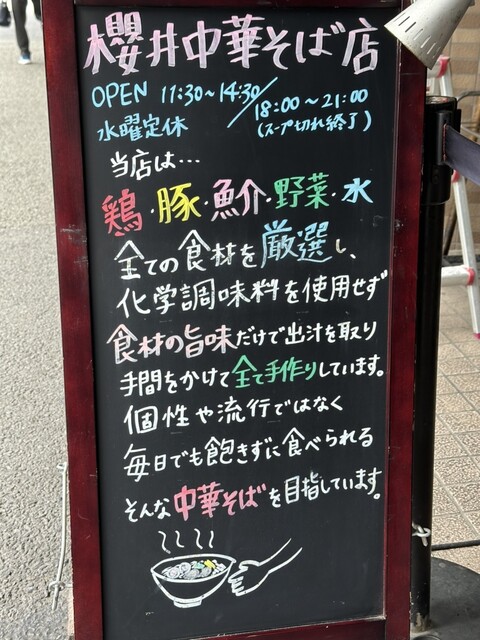 櫻井中華そば店
OPEN 11:30~14:30/18:00~21:00
水曜定休 (スープ切れ終了)
当店は…
鶏・豚・魚介・野菜・水
全ての食材を厳選し、
化学調味料を使用せず
食材の旨味だけで出汁を取り
手間をかけて全て手作りしています。
個性や流行ではなく
毎日でも飽きずに食べられる
そんな中華そばを目指しています。